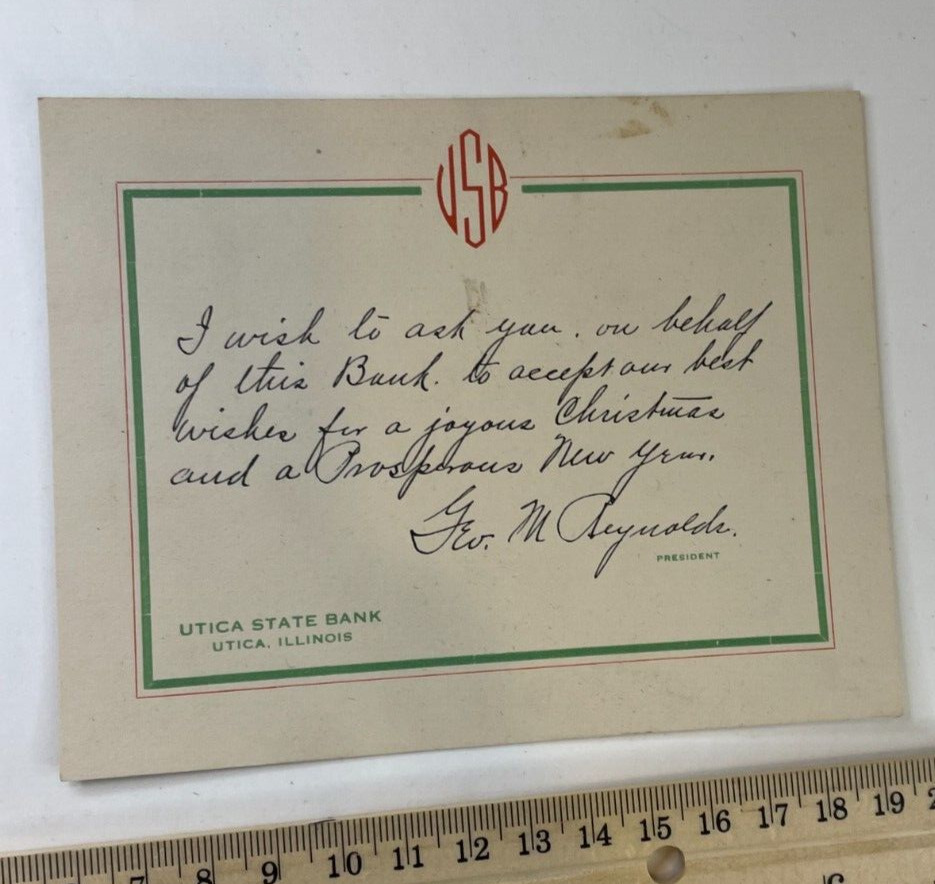 USB
I wish to ask you, on behalf
of this Bank, to accept our best
wishes for a joyous Christmas
and a Prosperous New Year.
Geo. M Reynolds.
PRESIDENT
UTICA STATE BANK
UTICA, ILLINOIS
7 8 9 10 11 12 13 14 15 16 17 18 19 2
6